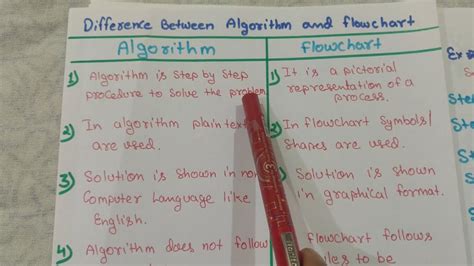 Difference Between Algorithm and flowchart
Algorithm
1) Algorithm is Step by Step
procedure to solve the problem
2) In algorithm plaintext
are used.
3) Solution is shown in non
Computer Language like
English.
4) Algorithm does not follow
flowchart
1) It is a pictorial
representation of a
process.
2) In flowchart Symbols/
Shapes are used.
3) Solution is shown
in graphical format.
flowchart follows
to be
Ex